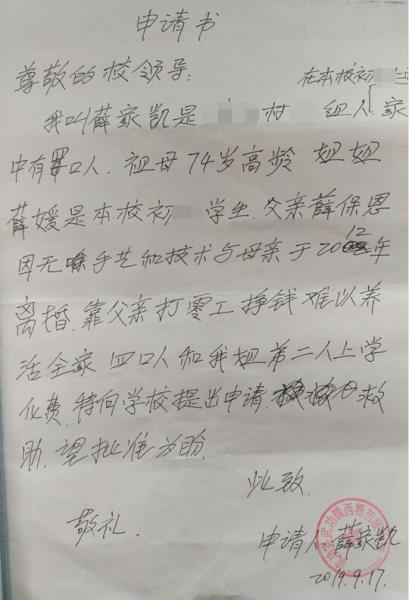 申请书
尊敬的校领导：
在本校初
我叫薛家凯是 村 组人家
中有四口人．祖母74岁高龄 姐姐
薛媛是本校初 学生．父亲薛保恩
因无手艺和技术与母亲于2012年
离婚．靠父亲打零工挣钱难以养
活全家四口人和我姐弟二人上学
化费．特向学校提出申请．救
助．望批准为盼．
此致．
敬礼．
申请人 薛家凯
2019.9.17.